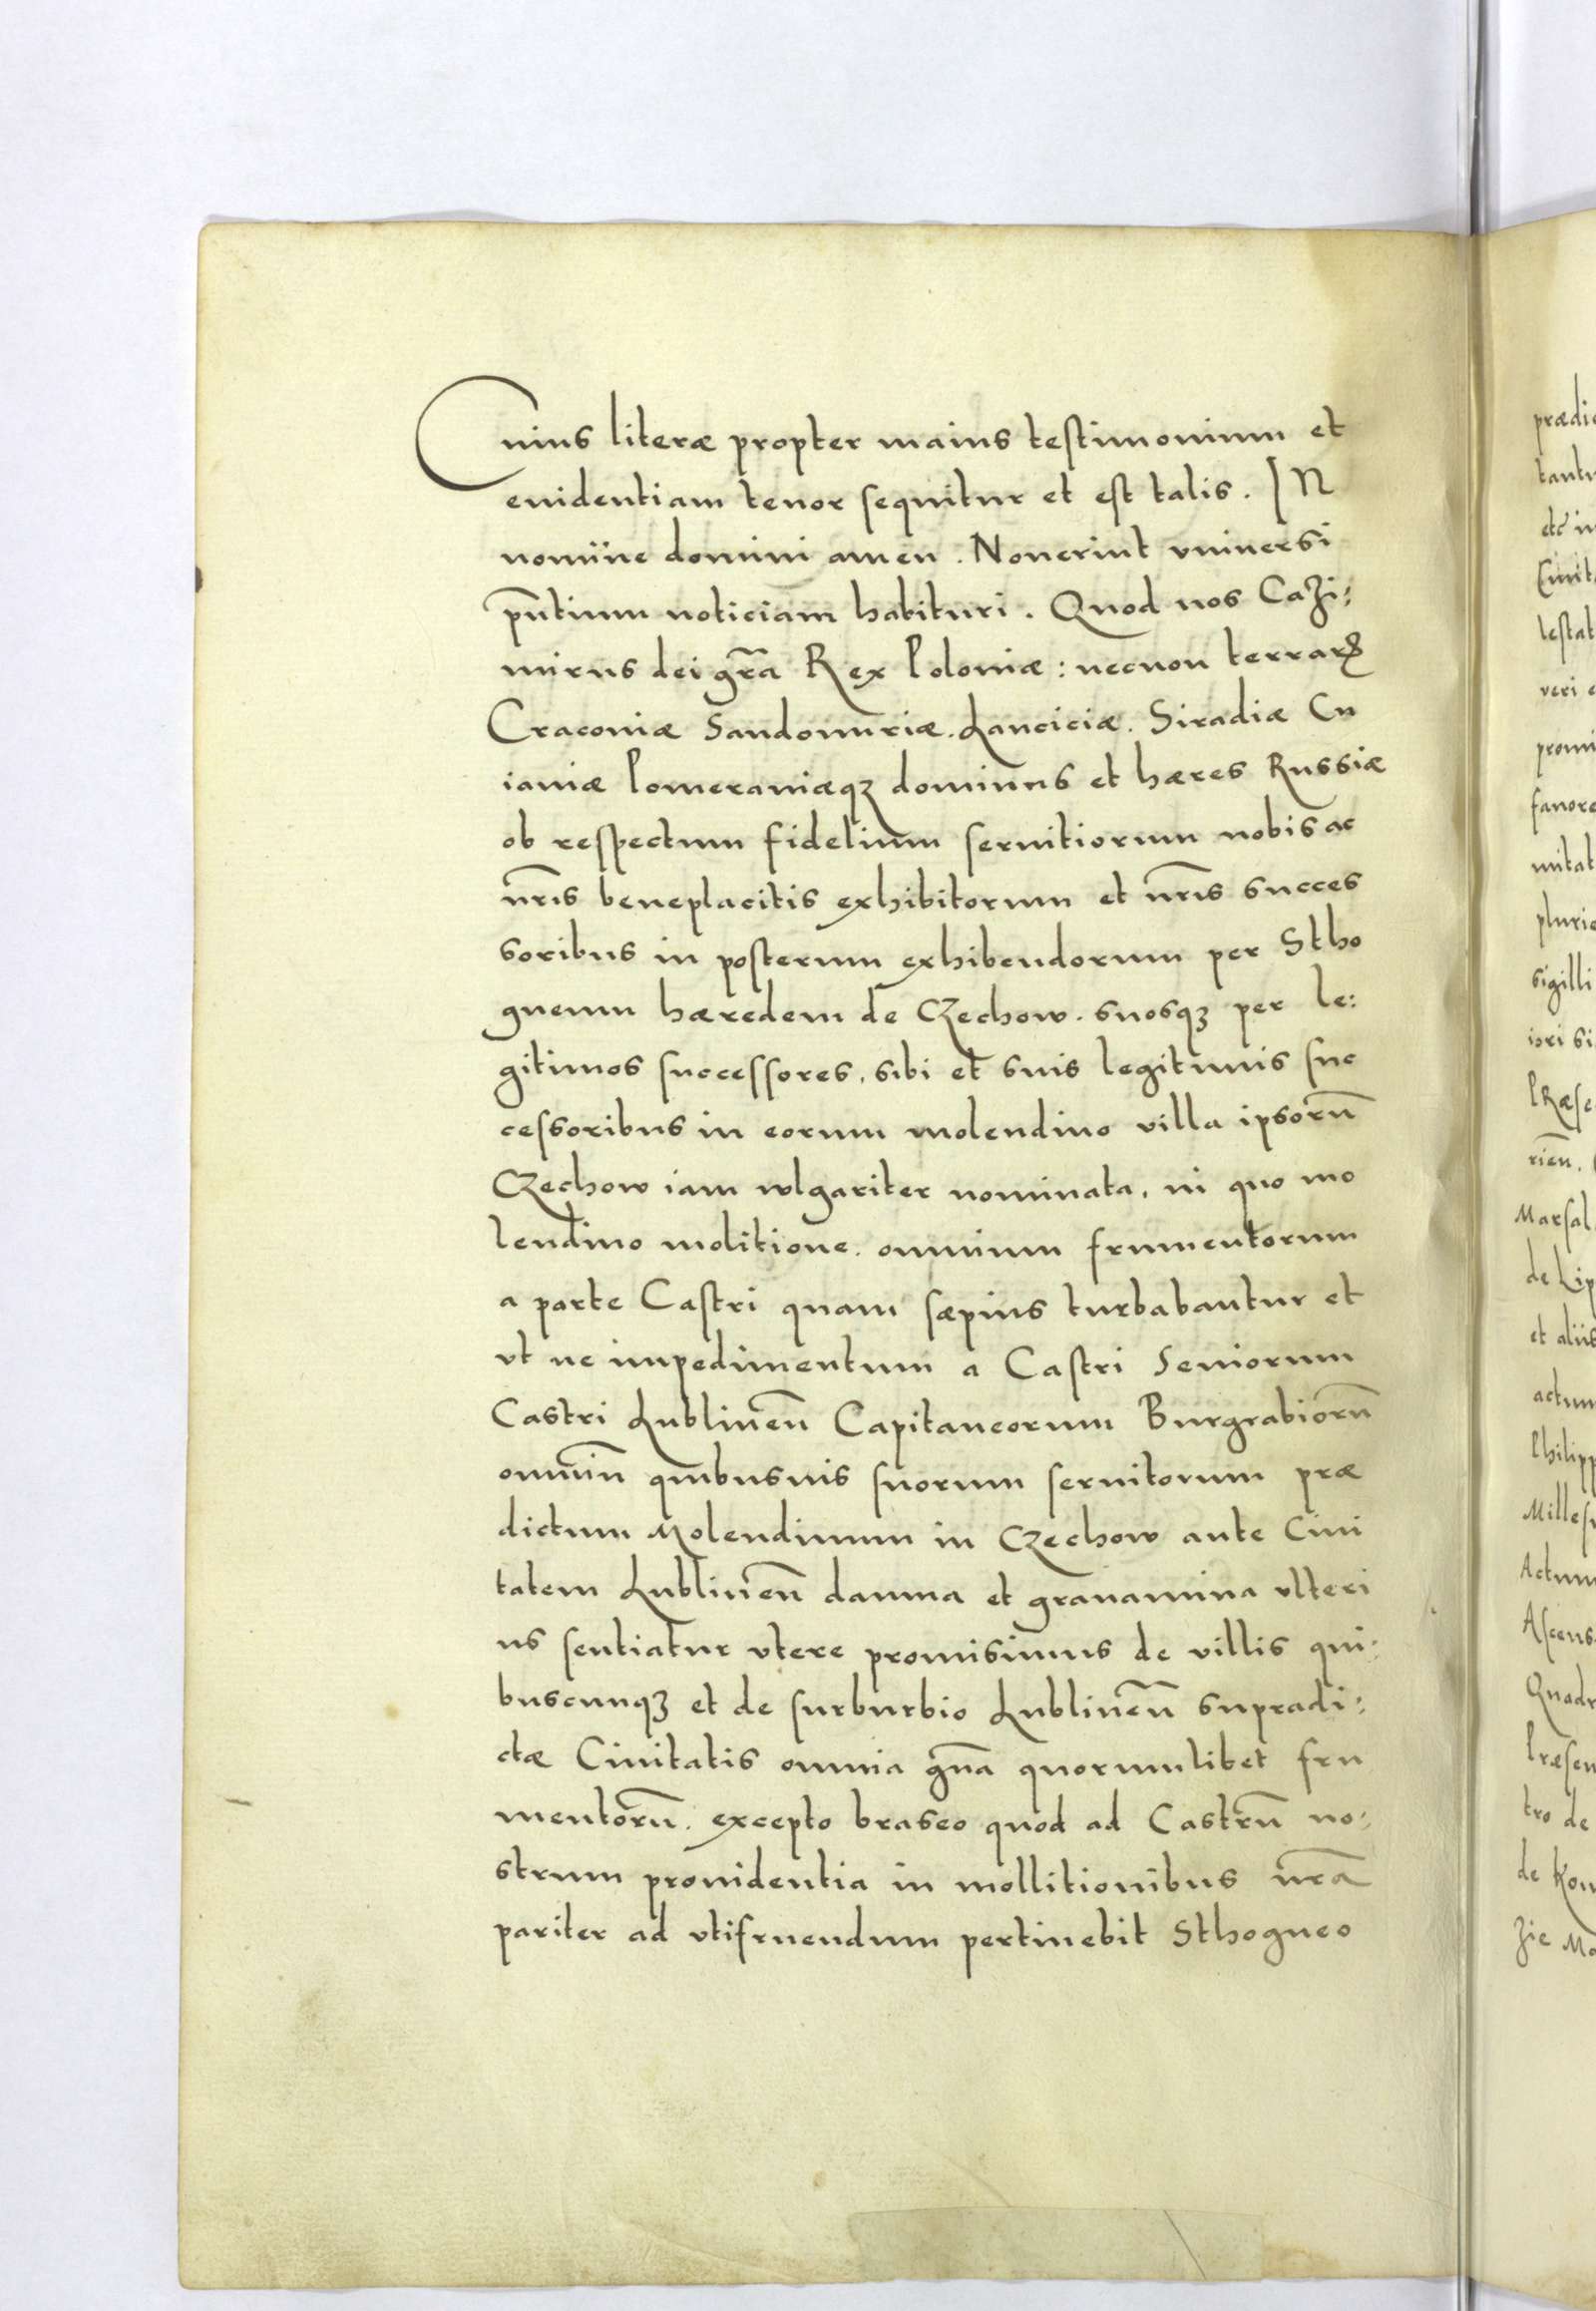 Cuius literæ propter maius testimonium et
euidentiam tenor sequitur et est talis. IN
nomine domini amen. Nouerint vniuersi
pñtium noticiam habituri. Quod nos Cazi:
mirus dei gr̃a Rex Poloniæ: necnon terrarꝝ
Cracouiæ Sandomiriæ. Lanciciæ. Siradiæ Cu
iauiæ Pomeraniæqꝫ dominus et hæres Russiæ
ob respectum fidelium seruitiorum nobis ac
nr̃is beneplacitis exhibitorum et nr̃is succes
soribus in posterum exhibendorum per Stho
gneum hæredem de Czechow. suosqꝫ per le:
gitimos successores, sibi et suis legitimis suc
cessoribus in eorum molendino villa ipsorũ
Czechow iam wlgariter nominata, in quo mo
lendino molitione. omnium frumentorum
a parte Castri quam sæpius turbabantur et
vt ne impedimentum a Castri Seniorum
Castri Lublineñ Capitaneorum Burgrabiorũ
omniũ quibusuis suorum seruitorum præ
dictum Molendinum in Czechow ante Ciui
tatem Lublineñ damna et grauamina vlteri
us sentiatur vtere promisimus de villis qui:
buscunqꝫ et de surburbio Lublineñ supradi:
ctæ Ciuitatis omnia gña quorumlibet fru
mentorũ. excepto braseo quod ad Castrũ no:
strum prouidentia in mollitionibus nr̃a
pariter ad vtifruendum pertinebit Sthogneo